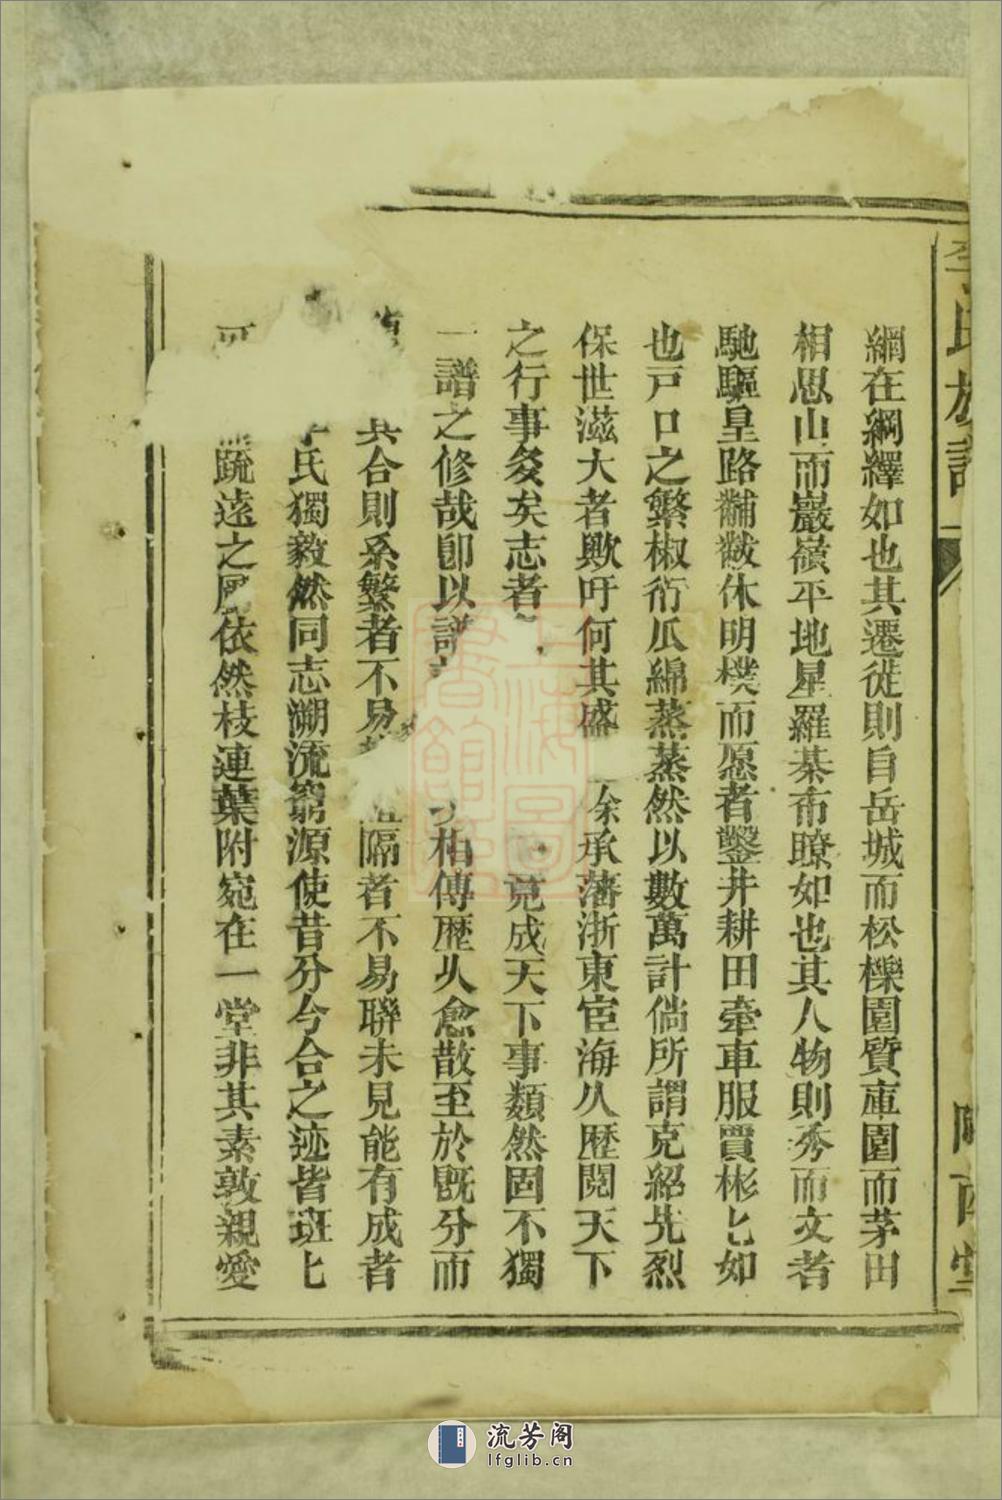 李氏族譜
隴西堂
網在綱繹如也其遷徙則自岳城而松櫟園質庫園而茅田
相思山而巖嶺平地星羅棊布瞭如也其人物則秀而文者
馳驅皇路黼黻休明樸而愿者鑿井耕田牽車服賈彬匕如
也戸口之繁椒衍瓜綿蒸蒸然以數萬計倘所謂克紹先烈
保世滋大者歟吁何其盛 余承藩浙東宦海久歷閱天下
之行事夥矣志者 竟成天下事類然固不獨
一譜之修哉卽以譜 相傳歷久愈散至於旣分而
其合則系繁者不易 隔者不易聯未見能有成者
李氏獨毅然同志溯流窮源使昔分今合之迹皆班匕
疏遠之 依然枝連葉附宛在一堂非其素敦親愛
上海圖書館藏
流芳阁
lfglib.cn